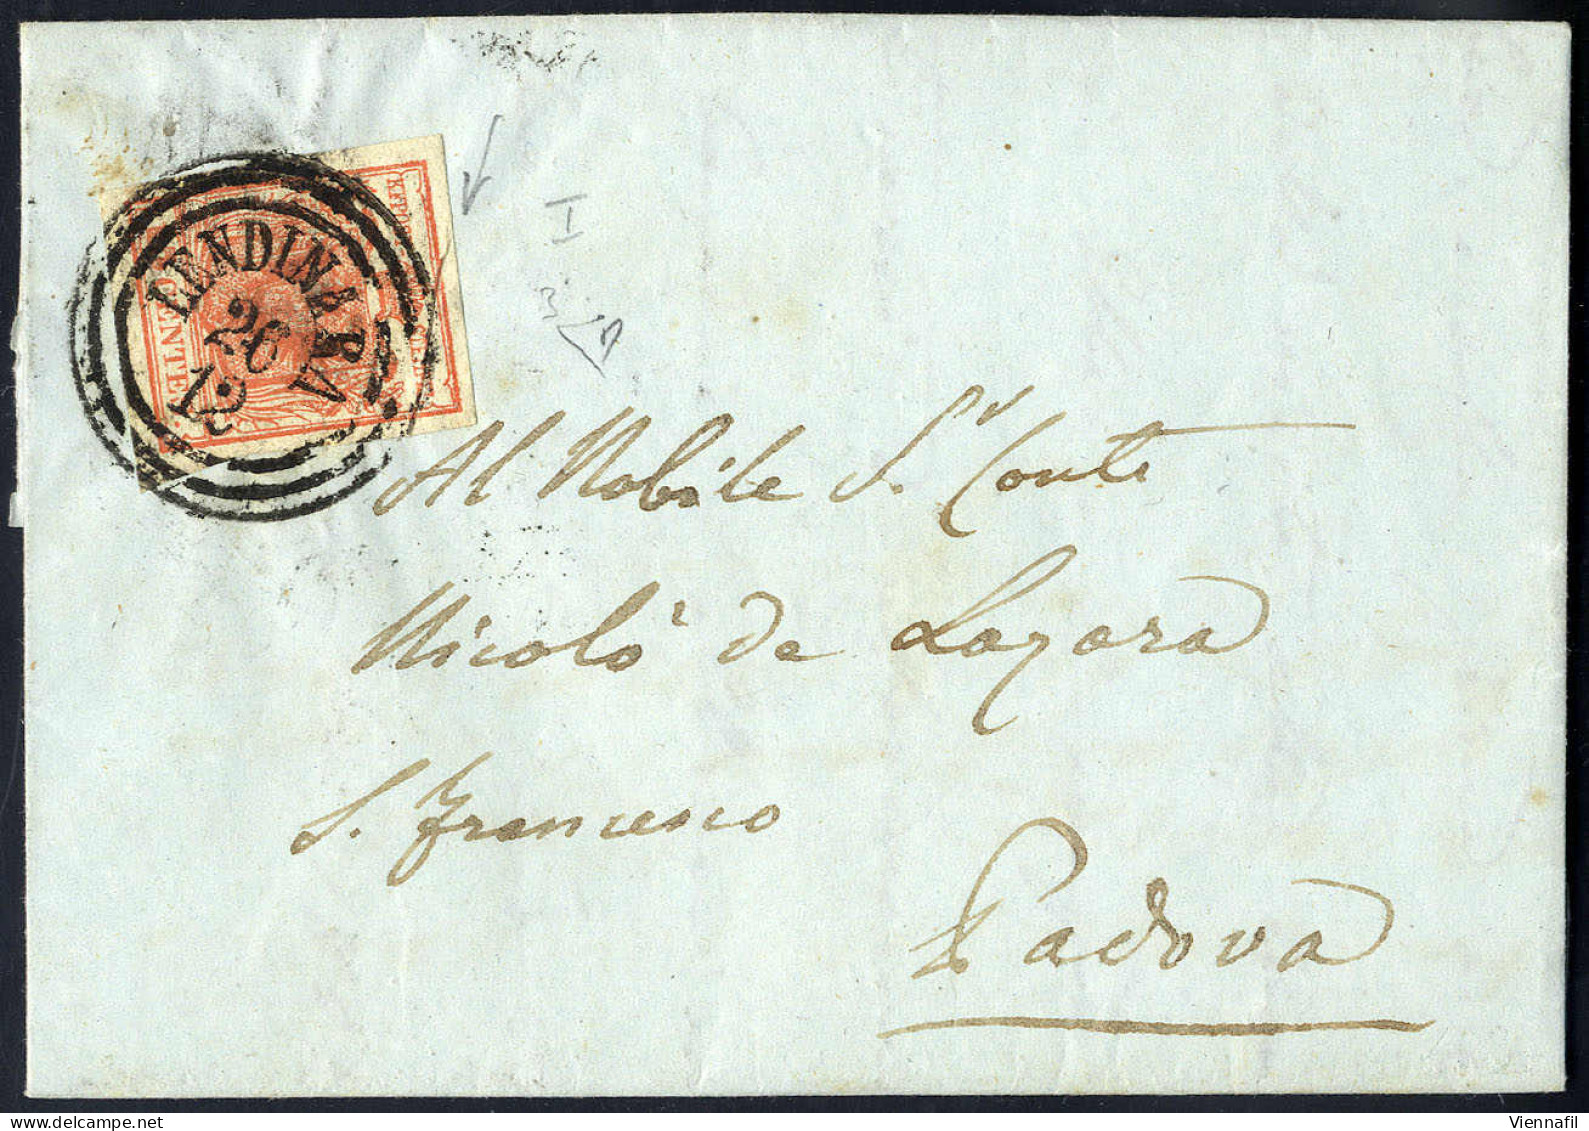 KKPOST
LENDINARA
26
12
CENTES
I
3
Al Nobile Sr Conte
Nicolò de Lazara
S. Francesco
Padova
Viennafil